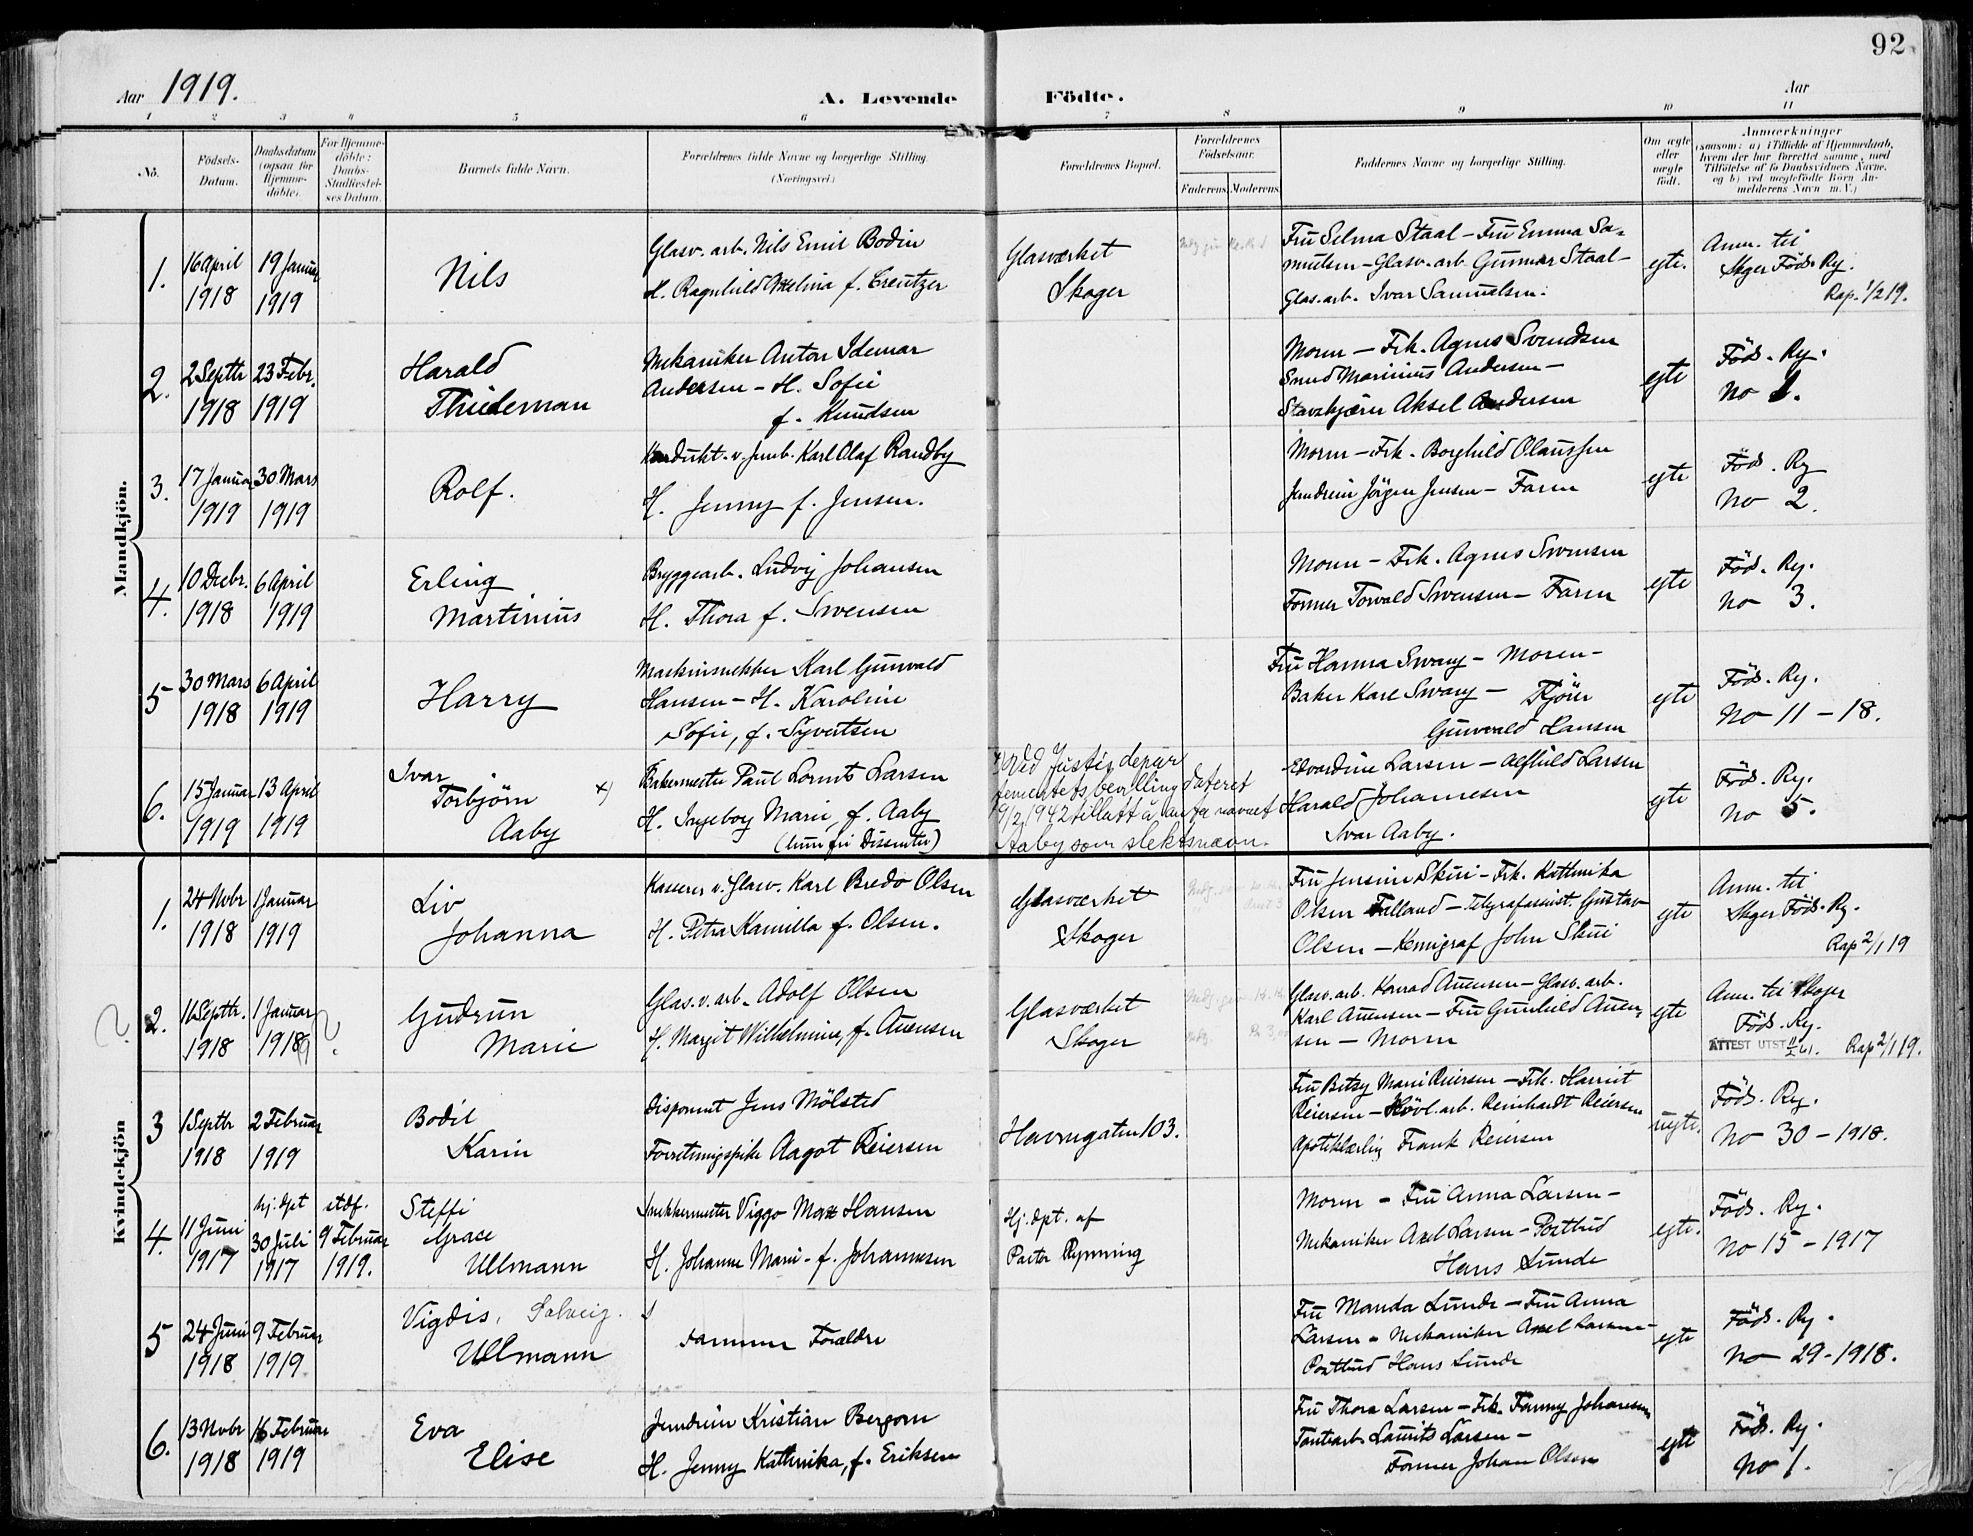 92
Aar 1919. A. Levende Födte. Aar
1 2 3 4 5 6 7 8 9 10 11
No.
Födsels-
Datum.
Daabsdatum
(ogsaa for
Hjemme-
döbte).
For Hjemme-
döbte:
Daabs-
Stadfæstel-
ses Datum.
Barnets fulde Navn.
Forældrenes fulde Navne og borgerlige Stilling.
(Næringsvei.)
Forældrenes Bopæl.
Forældrenes
Födselsaar.
Faderens. Moderens.
Faddernes Navne og borgerlige Stilling.
Om ægte
eller
uægte
født.
Anmærkninger
(saasom: a) i Tilfælde af Hjemmedaab,
hvem der har forrettet samme, med
Tilföielse af to Daabsvidners Navne,
og b) ved uægtefödte Börn An-
melderens Navn m. V.)
Mandkjön.
1.
16 April
1918
19 Januar
1919
Nils
Glasv. arb. Nils Emil Bodin
H. Ragnhild Axelina f. Creutzer
Glasværket
Skoger
Fru Selma Staal – Fru Emma Sa-
muelsen – Glasv. arb. Gunnar Staal –
Glas. arb. Ivar Samuelsen.
egte.
Anm. til
Skger Föds. Rg.
Rap. 1/2 19.
2.
2 Septbr
1918
23 Febr.
1919
Harald
Thideman
Mekaniker Anton Idemar
Andersen – H. Sofie
f. Knudsen
Moren – Frk. Agnes Svendsen
Smed Marinius Andersen –
Aksel Andersen
egte
Föds. Rg.
No 1.
3.
17 Januar
1919
30 Mars
1919
Rolf.
Kondukt. v. Jernb. Karl Olaf Randby
H. Jenny f. Jensen.
Moren – Frk. Borghild Olaussen
Jørgen Jensen – Faren
egte
Föds. Rg
No 2.
4.
10 Decbr.
1918
6 April
1919
Erling
Martinius
Bryggearb. Ludvig Johansen
H. Thora f. Svensen
Moren – Frk. Agnes Svensen
Former Torvald Svensen – Faren
egte
Föd. Rg.
No 3.
5
30 Mars
1918
6 April
1919
Harry
Maskinsnekker Karl Gunvald
Hansen – H. Karoline
Sofie, f. Syvertsen
Fru Hanna Svang – Moren –
Baker Karl Svang –
Gunvald Hansen
egte
Föds. Rg.
No 11 – 18.
6.
15 Januar
1919
13 April
1919
Ivar
Torbjörn x)
Aaby
Bakermester Paul Lornts Larsen
H. Ingeborg Marie, f. Aaby
(hun fri Dissenter)
x) Ved Justisdepar
tementets bevilling dateret
9/2 1942 tillatt å anta navnet
Aaby som slektsnavn.
Edvardine Larsen – Alfhild Larsen
Harald Johannesen
Ivar Aaby.
egte
Föds. Rg.
No 5.
Kvindekjön
1.
24 Novbr
1918
1 Januar
1919
Liv
Johanna
Kasserer v. Glasv. Karl Bredo Olsen
H. Petra Kamilla f. Olsen.
Glasværket
Skoger
Fru Jensine Skui – Frk. Kathinka
Olsen Falland – Telegrafassist. Gustav
Olsen – Kemigraf John Skui
egte
Anm. til
Skger Föds. Rg.
Rap 2/1 19
? 2.
16 Septbr.
1918
1 Januar
1918 9 ?
Gudrun
Marie
Glas. v. arb. Adolf Olsen
H. Margit Wilhelmine, f. Auensen
Glasværket
Skoger
Glasv. arb. Konrad Auensen – Glasv. arb.
Karl Auensen – Fru Gunhild Auen-
sen – Moren
egte
Anm. til Skoger
Föds. Rg.
ATTEST UTST. Rap 2/1 19.
3
1 Septbr
1918
2 Februar
1919
Bodil
Karin
Disponent Jens Mölsted
Forretningspike Aagot Reiersen
Havnegaten 103.
Fru Betzy Marie Reiersen – Frk. Harriet
Reiersen – Hövl. arb. Reinhardt Reiersen
Apoteklærling Frank Reiersen
uegte.
Föds. Rg.
No 30 – 1918.
4.
11 Juni
1917
hj. dpt
30 Juli
1917
stdf.
9 Februar
1919.
Steffi
Grace
Ullmann
Snekkermester Viggo Max Hansen
H. Johanne Marie – f. Johannesen
Hj. dpt. af
Pastor Rynning
Moren – Fru Anna Larsen –
Mekaniker Axel Larsen – Postbud
Hans Lunde
egte.
Föds. Rg.
No 15 – 1917
5
24 Juni
1918
9 Februar
1919
Vigdis, Solveig.
Ullmann
samme Forældre
Fru Manda Lunde – Fru Anna
Larsen – Mekaniker Axel Larsen –
Postbud Hans Lunde
egte
Föds. Rg.
No 29 – 1918.
6.
13 Novbr
1918
16 Februar
1919
Eva
Elise
Jerndreier Kristian Bergom
H. Jenny Kathinka, f. Eriksen
Fru Thora Larsen – Frk. Fanny Johannesen
Laurits Larsen –
Former Johan Olsen
egte
Föds. Rg.
No 1.